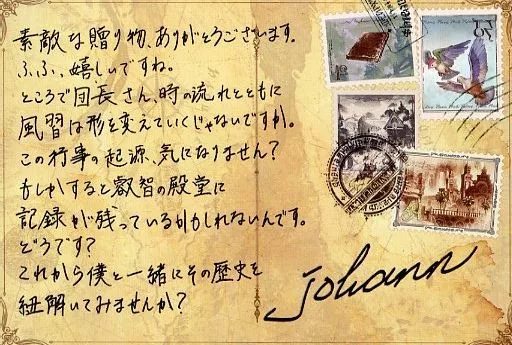 素敵な贈り物、ありがとうございます。
ふふ、嬉しいですね。
ところで団長さん、時の流れとともに
風習は形を変えていくじゃないですか。
この行事の起源、気になりません?
もしかすると叡智の殿堂に
記録が残っているかもしれないんです。
どうです?
これから僕と一緒にその歴史を
紐解いてみませんか?
Johann